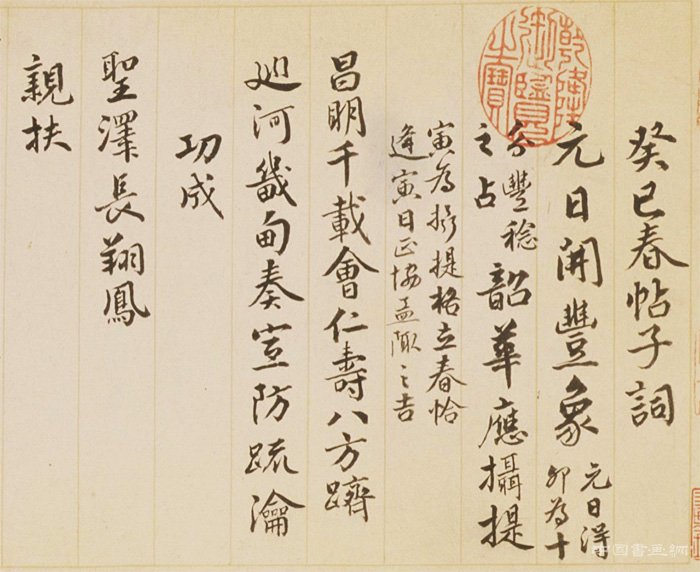 癸巳春帖子詞
元日開豐象
元日得
卯為十
分豐稔
之占
韶華應攝提
寅為攝提格立春恰
逢寅日正協孟陬之吉
昌明千載會仁壽八方躋
廵河畿甸奏宣防疏瀹
功成
聖澤長翔鳳
親扶
乾隆御覽之寶
中国書画網